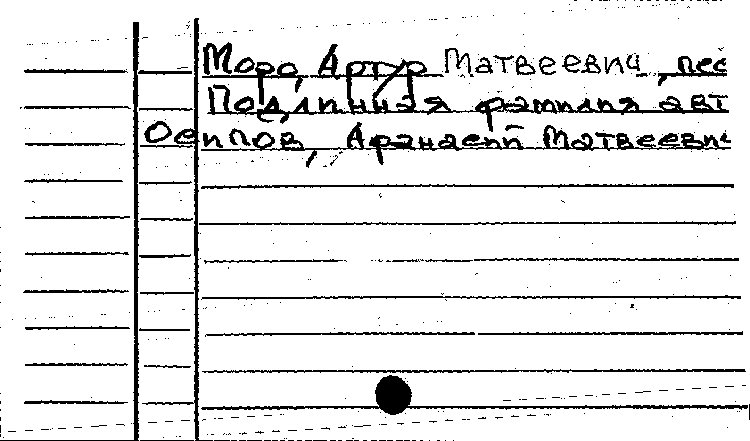 Моро, Артур Матвеевич, пес
Подлинная фамилия авт
Осипов, Афанасий Матвееви